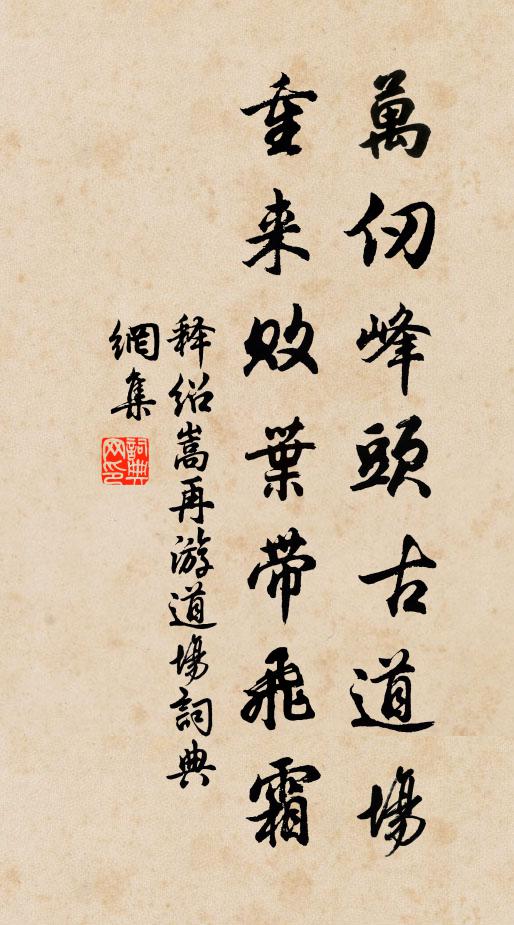 萬仞峰頭古道場
重来敗葉帶飛霜
释绍嵩再游道場詞典
網集
詞典網印